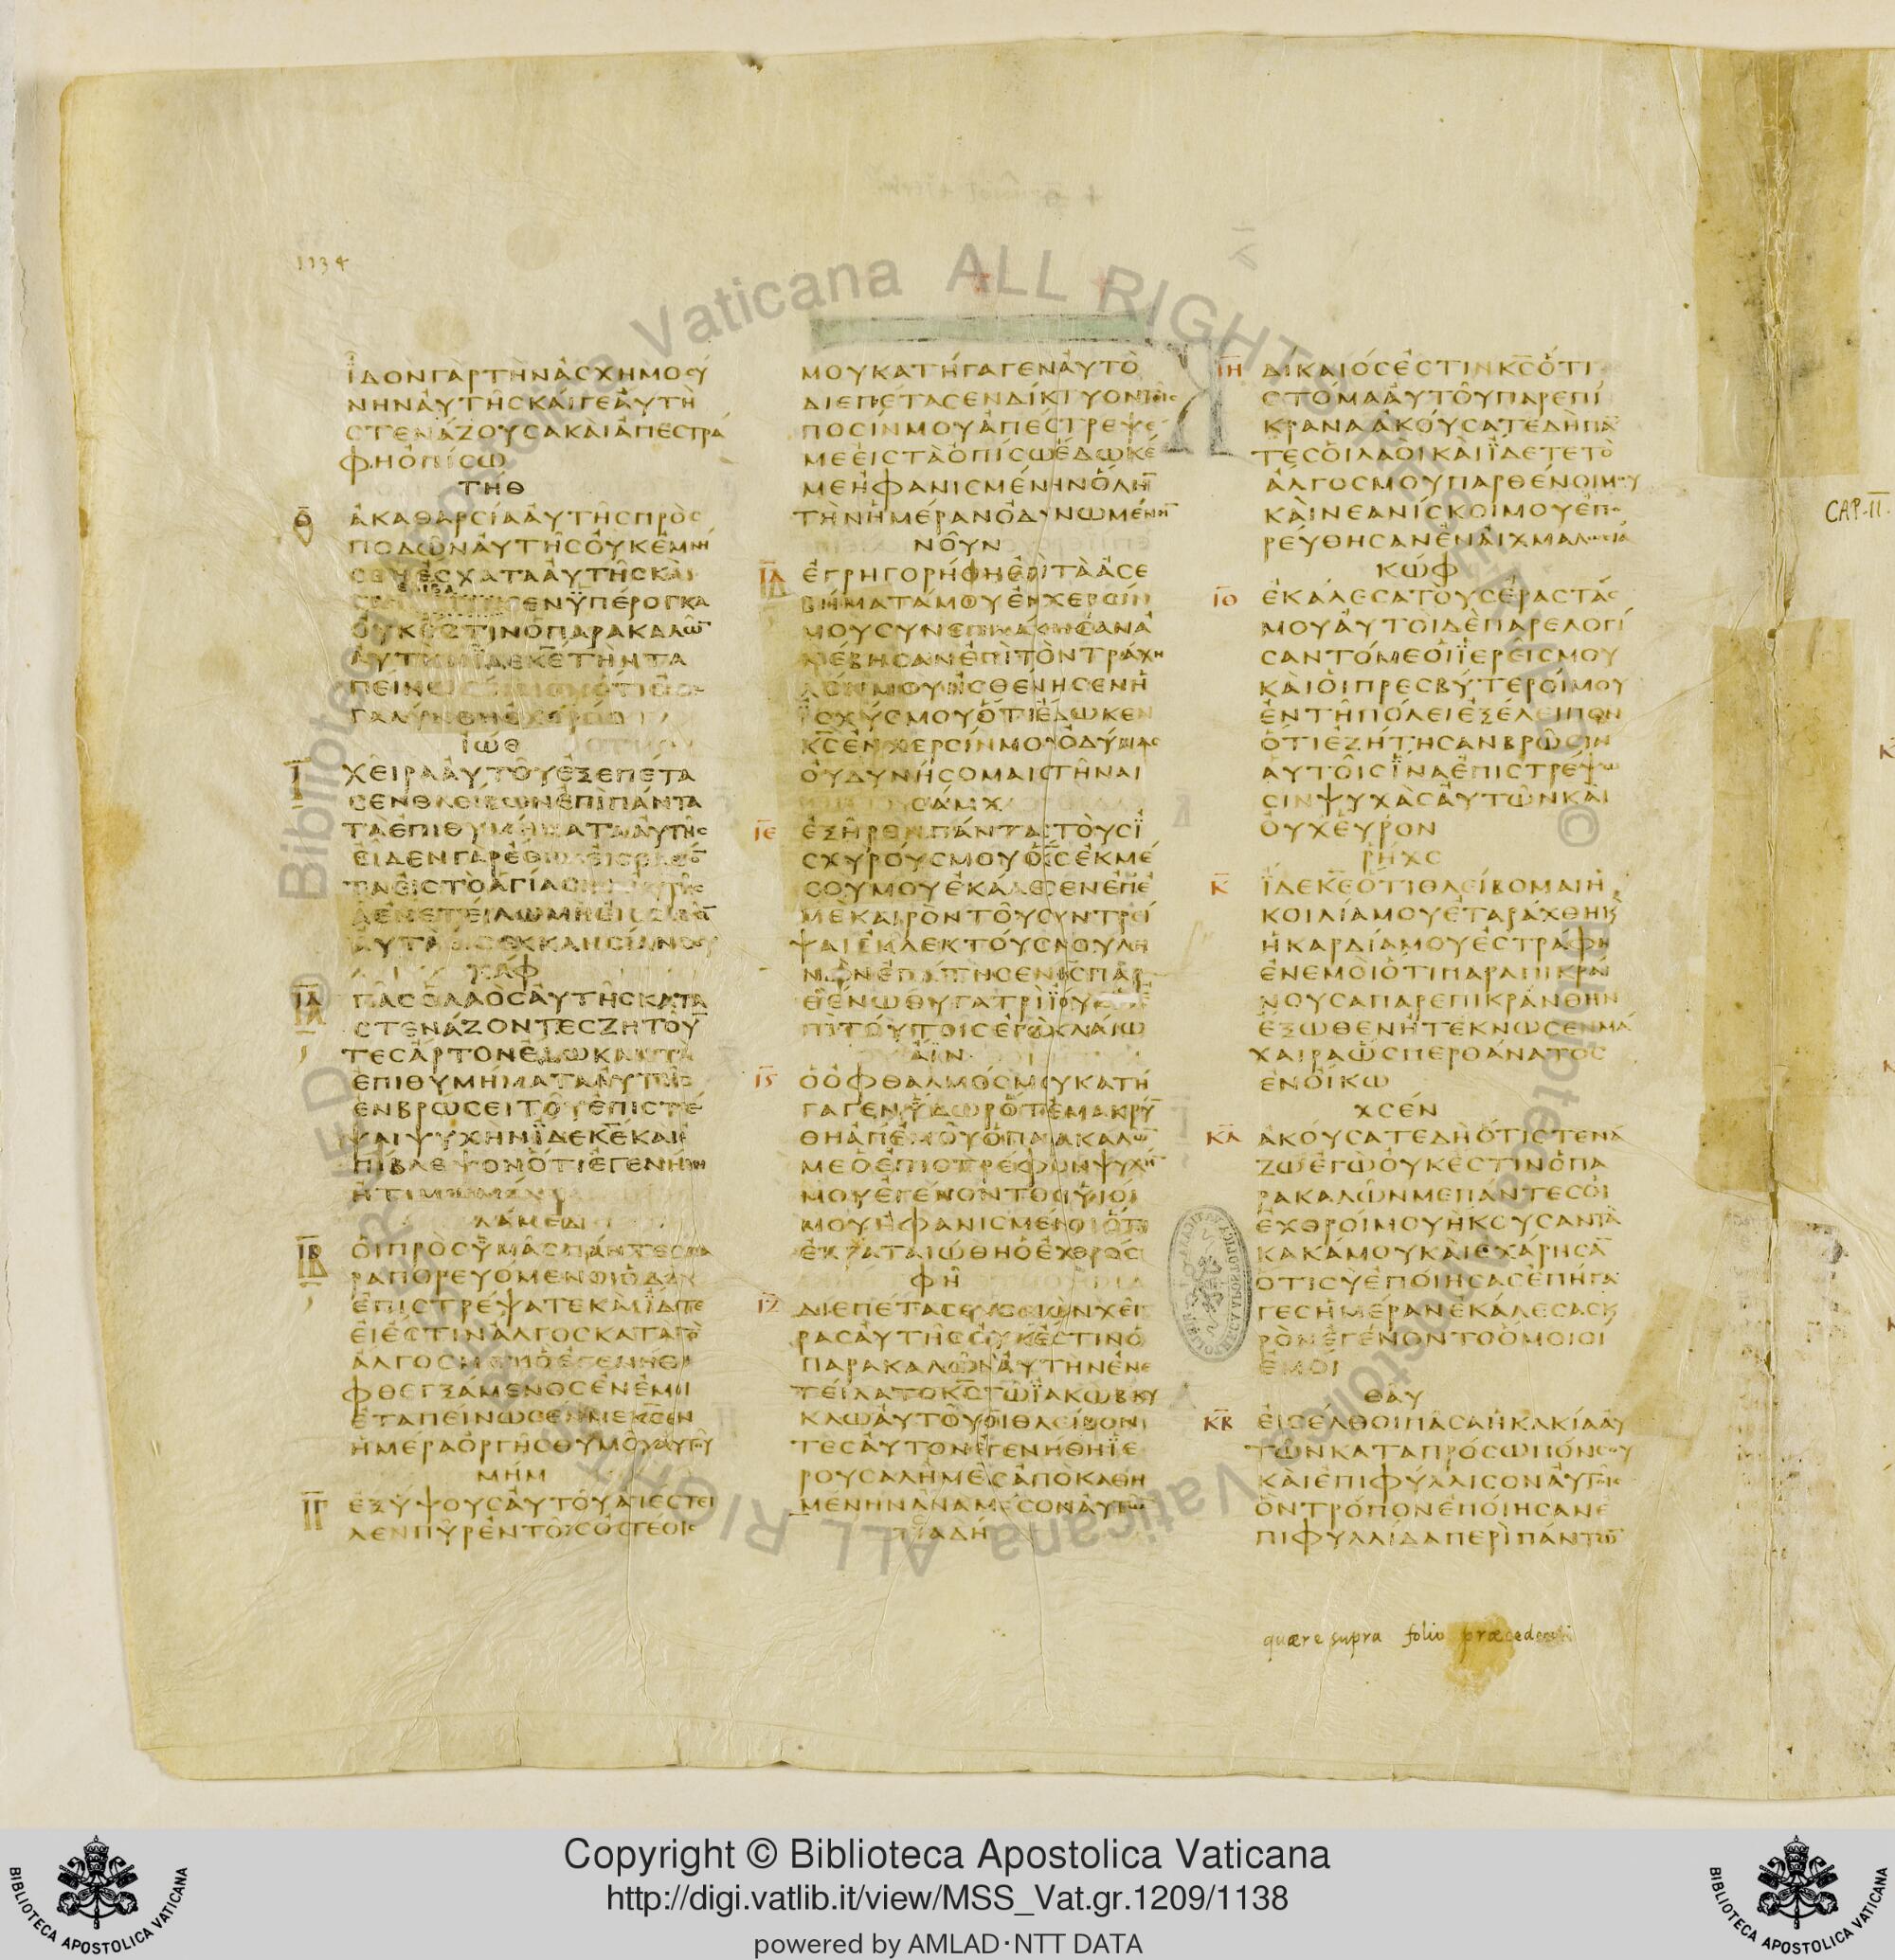 1134
ΪΔΟΝΓΑΡΤΗΝΑΣΧΗΜΟΣΥ
ΝΗΝΑΥΤΗΣΚΑΙΓΕΑΥΤΗ
ΣΤΕΝΑΖΟΥΣΑΚΑΙΑΠΕΣΤΡΑ
ΦΗΟΠΙΣΩ
ΤΗΘ
Θ ΑΚΑΘΑΡΣΙΑΑΥΤΗΣΠΡΟΣ
ΠΟΔΩΝΑΥΤΗΣΟΥΚΕΜΝΗ
ΣΘΗΕΣΧΑΤΑΑΥΤΗΣΚΑΙ
ΕΝΫΠΕΡΟΓΚΑ
ΟΥΚΕΣΤΙΝΟΠΑΡΑΚΑΛΩ̅
ΑΥΤΗΝΪΔΕΚ̅Ε̅ΤΗΝΤΑ
ΓΑΛΥΝΘΗΕΧΘΡΟΣ
ΙΩΘ
Ι̅ ΧΕΙΡΑΑΥΤΟΥΕΞΕΠΕΤΑ
ΣΕΝΘΛΕΙΒΩΝΕΠΙΠΑΝΤΑ
ΤΑΕΠΙΘΥΜΗΜΑΤΑΑΥΤΗΣ
ΕΙΔΕΝΓΑΡΕΘΝΗΕΙΣΕΛΘΟ̅
ΤΑΕΙΣΤΟΑΓΙΑΣΜΑΑΥΤΗΣ
ΑΕΝΕΤΕΙΛΩΜΗΕΙΣΕΛΘΕΙ̅
ΑΥΤΑΕΙΣΕΚΚΛΗΣΙΑΝΣΟΥ
ΧΑΦ
ΙΑ̅ ΠΑΣΟΛΑΟΣΑΥΤΗΣΚΑΤΑ
ΣΤΕΝΑΖΟΝΤΕΣΖΗΤΟΥ̅
ΤΕΣΑΡΤΟΝΕΔΩΚΑΝΤΑ
ΕΠΙΘΥΜΗΜΑΤΑΑΥΤΗΣ
ΕΝΒΡΩΣΕΙΤΟΥΕΠΙΣΤΡΕ
ΨΑΙΨΥΧΗΝΪΔΕΚ̅Ε̅ΚΑΙΕ
ΠΙΒΛΕΨΟΝΟΤΙΕΓΕΝΗΘΗ̅
ΗΤΙΜΩΜΕΝΗ
ΛΑΜΕΔ
ΙΒ̅ ΟΙΠΡΟΣΫΜΑΣΠΑΝΤΕΣΠΑ
ΡΑΠΟΡΕΥΟΜΕΝΟΙΟΔΟΝ
ΕΠΙΣΤΡΕΨΑΤΕΚΑΙΪΔΕΤΕ
ΕΙΕΣΤΙΝΑΛΓΟΣΚΑΤΑΤΟ
ΑΛΓΟΣΜΟΥΟΕΓΕΝΗΘΗ
ΦΘΕΓΞΑΜΕΝΟΣΕΝΕΜΟΙ
ΕΤΑΠΕΙΝΩΣΕΝΜΕΚ̅Σ̅ΕΝ
ΗΜΕΡΑΟΡΓΗΣΘΥΜΟΥΑΥΤΟΥ
ΜΗΜ
ΙΓ̅ ΕΞΥΨΟΥΣΑΥΤΟΥΑΠΕΣΤΕΙ
ΛΕΝΠΥΡΕΝΤΟΙΣΟΣΤΕΟΙΣ
ΜΟΥΚΑΤΗΓΑΓΕΝΑΥΤΟ
ΔΙΕΠΕΤΑΣΕΝΔΙΚΤΥΟΝΤΟΙΣ
ΠΟΣΙΝΜΟΥΑΠΕΣΤΡΕΨΕ
ΜΕΕΙΣΤΑΟΠΙΣΩΕΔΩΚΕ
ΜΕΗΦΑΝΙΣΜΕΝΗΝΟΛΗ̅
ΤΗΝΗΜΕΡΑΝΟΔΥΝΩΜΕΝΗ̅
ΝΟΥΝ
ΙΔ̅ ΕΓΡΗΓΟΡΗΘΗΕΠΙΤΑΑΣΕ
ΒΗΜΑΤΑΜΟΥΕΝΧΕΡΣΙΝ
ΜΟΥΣΥΝΕΠΛΑΚΗΣΑΝΑ
ΝΕΒΗΣΑΝΕΠΙΤΟΝΤΡΑΧΗ
ΛΟΝΜΟΥΗΣΘΕΝΗΣΕΝΗ
ΪΣΧΥΣΜΟΥΟΤΙΕΔΩΚΕΝ
Κ̅Σ̅ΕΝΧΕΡΣΙΝΜΟΥΟΔΥΝΑΣ
ΟΥΔΥΝΗΣΟΜΑΙΣΤΗΝΑΙ
ΣΑΜΧ
ΙΕ̅ ΕΞΗΡΕΝΠΑΝΤΑΣΤΟΥΣΪ
ΣΧΥΡΟΥΣΜΟΥΟΚ̅Σ̅ΕΚΜΕ
ΣΟΥΜΟΥΕΚΑΛΕΣΕΝΕΠΕ
ΜΕΚΑΙΡΟΝΤΟΥΣΥΝΤΡΕΙ
ΨΑΙΕΚΛΕΚΤΟΥΣΜΟΥΛΗ
ΝΟΝΕΠΑΤΗΣΕΝΚ̅Σ̅ΠΑΡ
ΘΕΝΩΘΥΓΑΤΡΙΪΟΥΔΑΕ
ΠΙΤΟΥΤΟΙΣΕΓΩΚΛΑΙΩ
ΑΪΝ
ΙϚ̅ ΟΟΦΘΑΛΜΟΣΜΟΥΚΑΤΗ
ΓΑΓΕΝΫΔΩΡΟΤΙΕΜΑΚΡΥ̅
ΘΗΑΠΕΜΟΥΟΠΑΡΑΚΑΛΩ̅
ΜΕΟΕΠΙΣΤΡΕΦΩΝΨΥΧΗ̅
ΜΟΥΕΓΕΝΟΝΤΟΟΙΫΙΟΙ
ΜΟΥΗΦΑΝΙΣΜΕΝΟΙΟΤΙ
ΕΚΡΑΤΑΙΩΘΗΟΕΧΘΡΟΣ
ΦΗ
ΙΖ̅ ΔΙΕΠΕΤΑΣΕΝΣΙΩΝΧΕΙ
ΡΑΣΑΥΤΗΣΟΥΚΕΣΤΙΝΟ
ΠΑΡΑΚΑΛΩΝΑΥΤΗΝΕΝΕ
ΤΕΙΛΑΤΟΚ̅Σ̅ΤΩΪΑΚΩΒΚΥ
ΚΛΩΑΥΤΟΥΟΙΘΛΕΙΒΟΝ
ΤΕΣΑΥΤΟΝΕΓΕΝΗΘΗΪΕ
ΡΟΥΣΑΛΗΜΕΙΣΑΠΟΚΑΘΗ
ΜΕΝΗΝΑΝΑΜΕΣΟΝΑΥΤΩ̅
ΤΙΑΔΗ
ΙΗ̅ ΔΙΚΑΙΟΣΕΣΤΙΝΚ̅Σ̅ΟΤΙ
ΣΤΟΜΑΑΥΤΟΥΠΑΡΕΠΙ
ΚΡΑΝΑΑΚΟΥΣΑΤΕΔΗΠΑ̅
ΤΕΣΟΙΛΑΟΙΚΑΙΪΔΕΤΕΤΟ
ΑΛΓΟΣΜΟΥΠΑΡΘΕΝΟΙΜΟΥ
ΚΑΙΝΕΑΝΙΣΚΟΙΜΟΥΕΠΟ
ΡΕΥΘΗΣΑΝΕΝΑΙΧΜΑΛΩΣΙΑ
ΚΩΦ
ΙΘ̅ ΕΚΑΛΕΣΑΤΟΥΣΕΡΑΣΤΑΣ
ΜΟΥΑΥΤΟΙΔΕΠΑΡΕΛΟΓΙ
ΣΑΝΤΟΜΕΟΙΪΕΡΕΙΣΜΟΥ
ΚΑΙΟΙΠΡΕΣΒΥΤΕΡΟΙΜΟΥ
ΕΝΤΗΠΟΛΕΙΕΞΕΛΕΙΠΟΝ
ΟΤΙΕΖΗΤΗΣΑΝΒΡΩΣΙΝ
ΑΥΤΟΙΣΪΝΑΕΠΙΣΤΡΕΨΩ
ΣΙΝΨΥΧΑΣΑΥΤΩΝΚΑΙ
ΟΥΧΕΥΡΟΝ
ΡΗΧΣ
Κ̅ ΪΔΕΚ̅Ε̅ΟΤΙΘΛΕΙΒΟΜΑΙΗ
ΚΟΙΛΙΑΜΟΥΕΤΑΡΑΧΘΗΚ
ΗΚΑΡΔΙΑΜΟΥΕΣΤΡΑΦΗ
ΕΝΕΜΟΙΟΤΙΠΑΡΑΠΙΚΡΑΙ
ΝΟΥΣΑΠΑΡΕΠΙΚΡΑΝΘΗΝ
ΕΞΩΘΕΝΗΤΕΚΝΩΣΕΝΜΑ
ΧΑΙΡΑΩΣΠΕΡΘΑΝΑΤΟΣ
ΕΝΟΙΚΩ
ΧΣΕΝ
ΚΑ̅ ΑΚΟΥΣΑΤΕΔΗΟΤΙΣΤΕΝΑ
ΖΩΕΓΩΟΥΚΕΣΤΙΝΟΠΑ
ΡΑΚΑΛΩΝΜΕΠΑΝΤΕΣΟΙ
ΕΧΘΡΟΙΜΟΥΗΚΟΥΣΑΝΤΑ
ΚΑΚΑΜΟΥΚΑΙΕΧΑΡΗΣΑ̅
ΟΤΙΣΥΕΠΟΙΗΣΑΣΕΠΗΓΑ
ΓΕΣΗΜΕΡΑΝΕΚΑΛΕΣΑΣΚ
ΡΟΝΕΓΕΝΟΝΤΟΟΜΟΙΟΙ
ΕΜΟΙ
ΘΑΥ
ΚΒ̅ ΕΙΣΕΛΘΟΙΠΑΣΑΗΚΑΚΙΑΑΥ
ΤΩΝΚΑΤΑΠΡΟΣΩΠΟΝΣΟΥ
ΚΑΙΕΠΙΦΥΛΛΙΣΟΝΑΥΤΟΙΣ
ΟΝΤΡΟΠΟΝΕΠΟΙΗΣΑΝΕ
ΠΙΦΥΛΛΙΔΑΠΕΡΙΠΑΝΤΩ̅
quære supra folio præcedenti
CAP. II.
Copyright © Biblioteca Apostolica Vaticana
http://digi.vatlib.it/view/MSS_Vat.gr.1209/1138
powered by AMLAD·NTT DATA
BIBLIOTECA APOSTOLICA VATICANA
BIBLIOTECA APOSTOLICA VATICANA